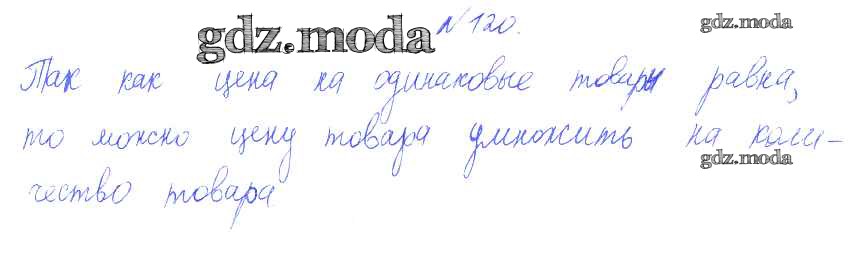 №120.
gdz.moda
gdz.moda
Так как цена на одинаковые товары равна,
то можно цену товара умножить на коли-
gdz.moda
чество товара